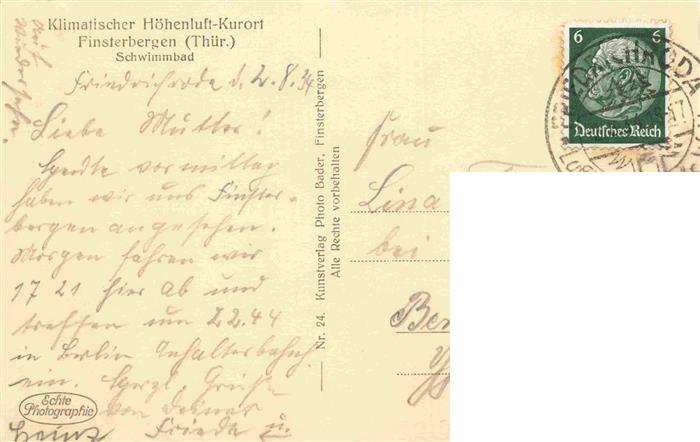 Klimatischer Höhenluft-Kurort
Finsterbergen (Thür.)
Schwimmbad
Auf
Wiedersehn!
Friedrichroda d. 2.8.34
Liebe Mutter!
vormittag
haben wir uns Finster-
bergen angesehen.
Morgen fahren wir
17 21 hier ab und
treffen um 22.44
in Berlin Anhalterbahnh.
ein. Herzl. Grüße
von Deiner
Friede u
Heinz
Echte
Photographie
Nr. 24. Kunstverlag Photo Bader, Finsterbergen
Alle Rechte vorbehalten
6 6
Deutsches Reich
FRIEDRICHRODA
Frau
Lina
bei